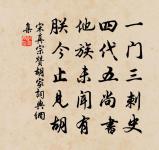 一门三刺史
四代五尚书
地族未闻有
朕今止见胡
宋真宗赞胡家词典网
集